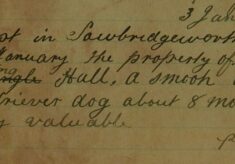 3 Jan
st in Sawbridgeworth
January the property of
Hall, a smooth
triever dog about 8 mo
y valuable